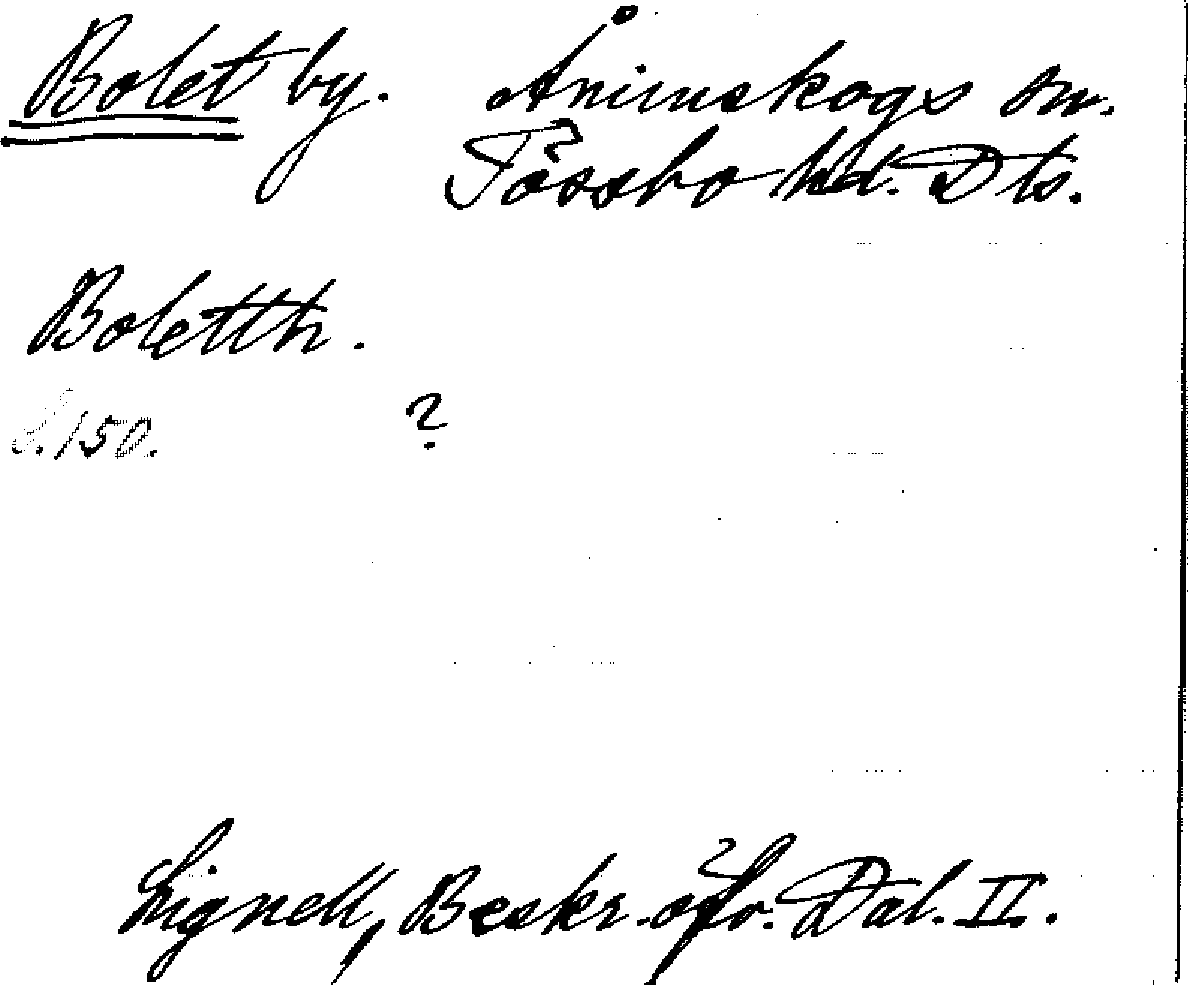 Bolet by. Ånimskogs sn.
Tössbo hd. Dls.
Boletth.
S. 150. ?
Lignell, Beskr. öfv. Dal. II.